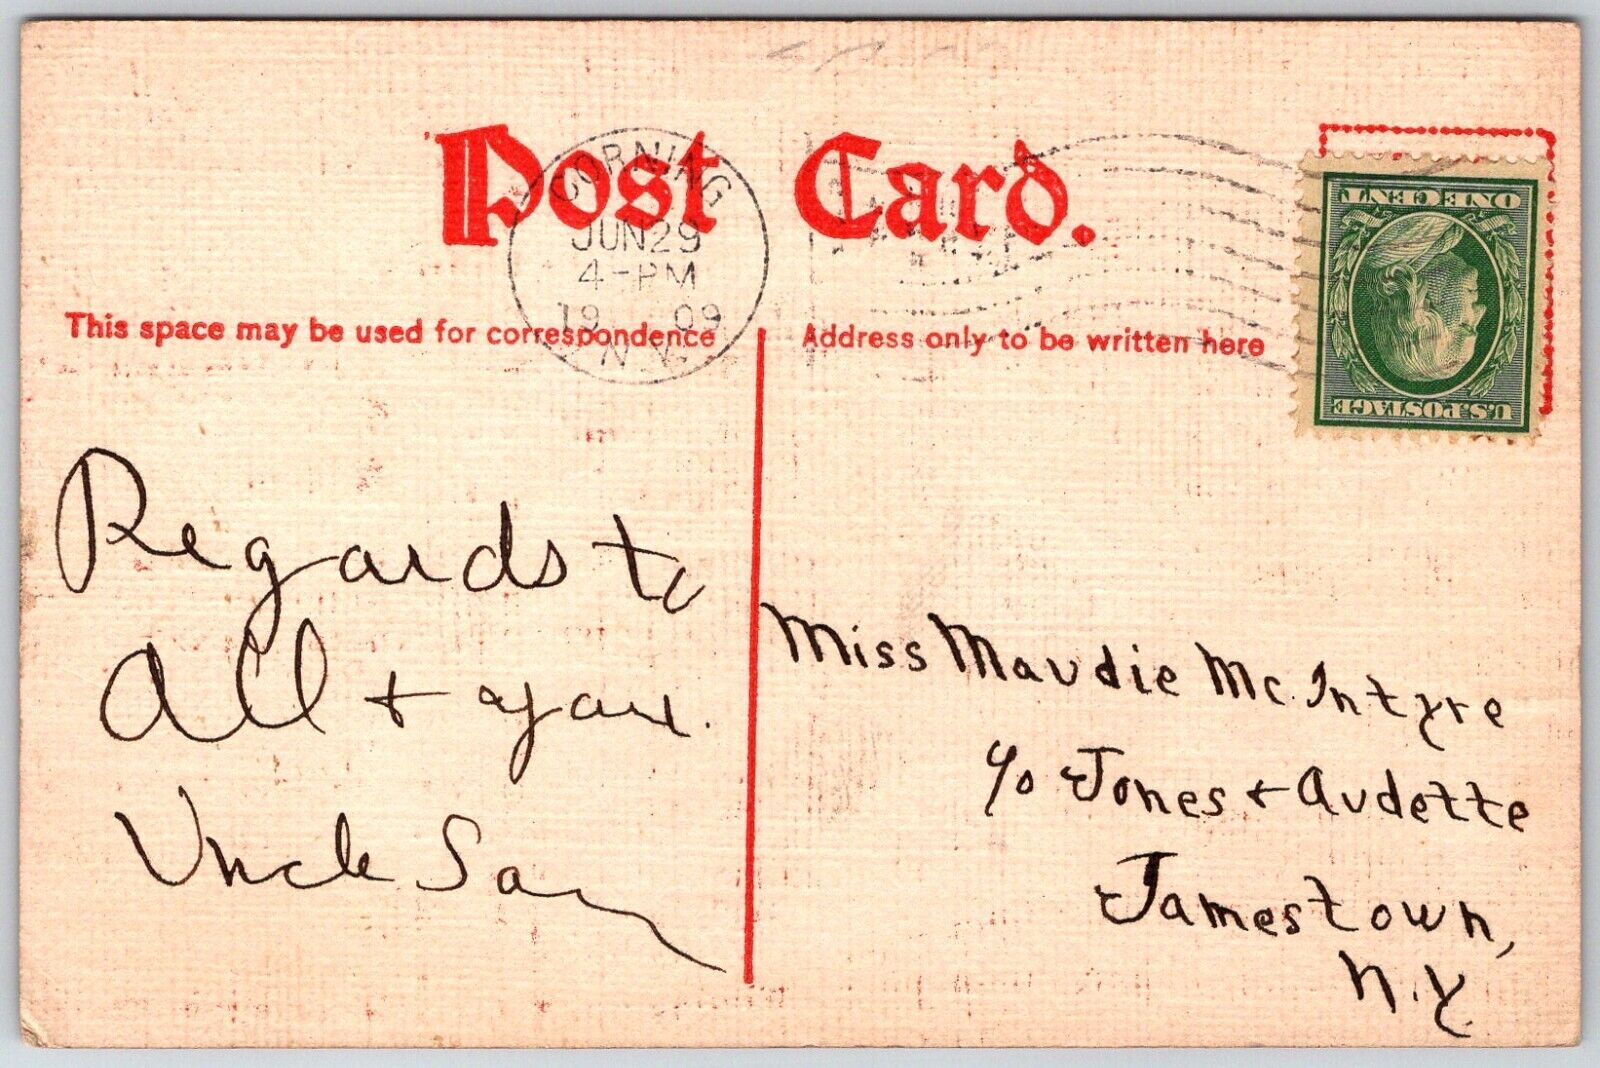 Post Card.
CORNING
JUN 29
4-PM
1909
N.Y.
ONE CENT
U.S. POSTAGE
This space may be used for correspondence
Address only to be written here
Regards to
All + your.
Uncle Sam
Miss Maudie McIntyre
c/o Jones + Audette
Jamestown,
N.Y.